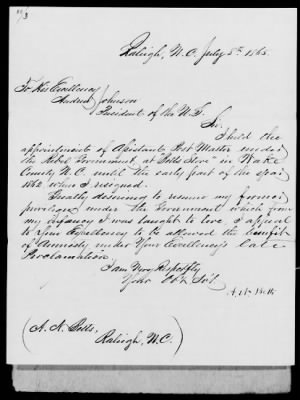 Raleigh, N.C. July 5th 1865.
To His Excellency
Andrew Johnson
President of the U.S.
Sir,
I held the
appointment of Assistant Post Master under
the Rebel Government, at Store" in Wake
County N.C. until the early part of the year
1862 when I resigned.
Greatly desiring to resume my former
privileges under the Government which from
my infancy I was taught to love, I appeal
to Your Excellency to be allowed the benefit
of Amnesty under Your Excellency's late
Proclamation.
I am Very Respectfly
Your Obt Svt
A. N.
(A. N.
Raleigh, N.C.)